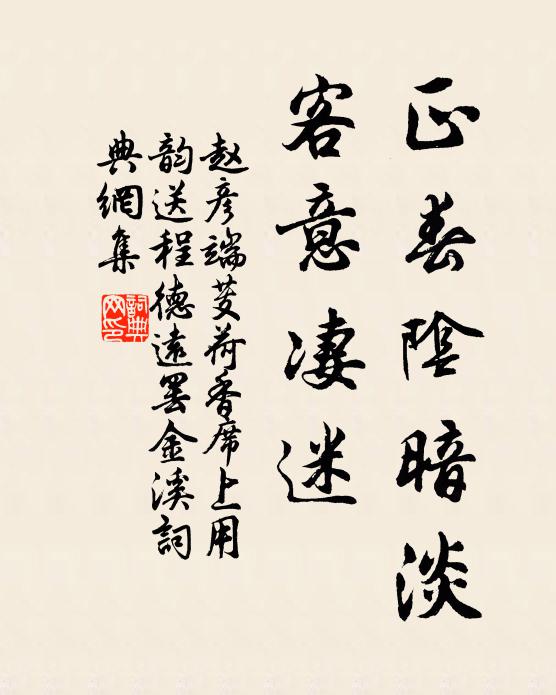 正春陰暗淡
客意淒迷
赵彦端芰荷香席上用
韵送程德遠罢金溪詞
典網集
詞典
网印